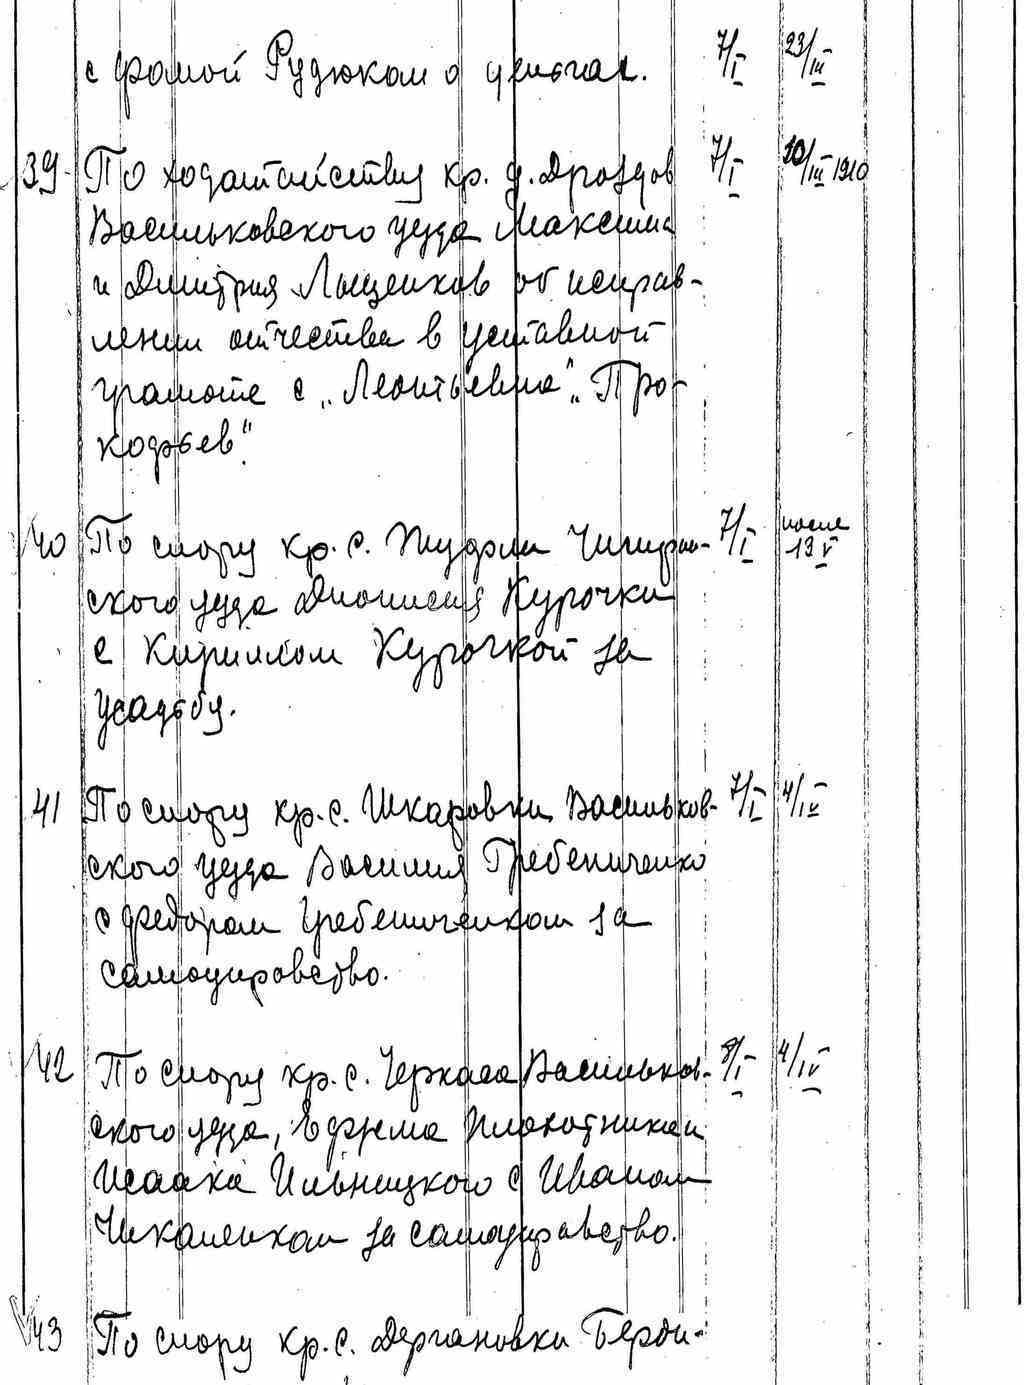 с Фомой Рудюком о деньгах. 7/I 23/III
39 По ходатайству кр. д. Дроздов 7/I 10/III 1910
Васильковского уезда Максима
и Дмитрия Лященков об исправ-
лении отчества в уставной
грамоте с „Леонтьевича" „Про-
кофьев".
40 По спору кр. с. Чигирин- 7/I после 13/V
ского уезда Дионисия Курочки
с Кириллом Курочкой за
усадьбу.
41 По спору кр. с. Шкаровки Васильков- 7/I 4/IV
ского уезда Василия Гребениченко
с Федором Гребениченком за
самоуправство.
42 По спору кр. с. Черкаса Васильков- 8/I 4/IV
ского уезда, Ефрема Плахотника и
Исаака Ильницкого с Иваном
Чкаленком за самоуправство.
43 По спору кр. с. Дергановки Берди-